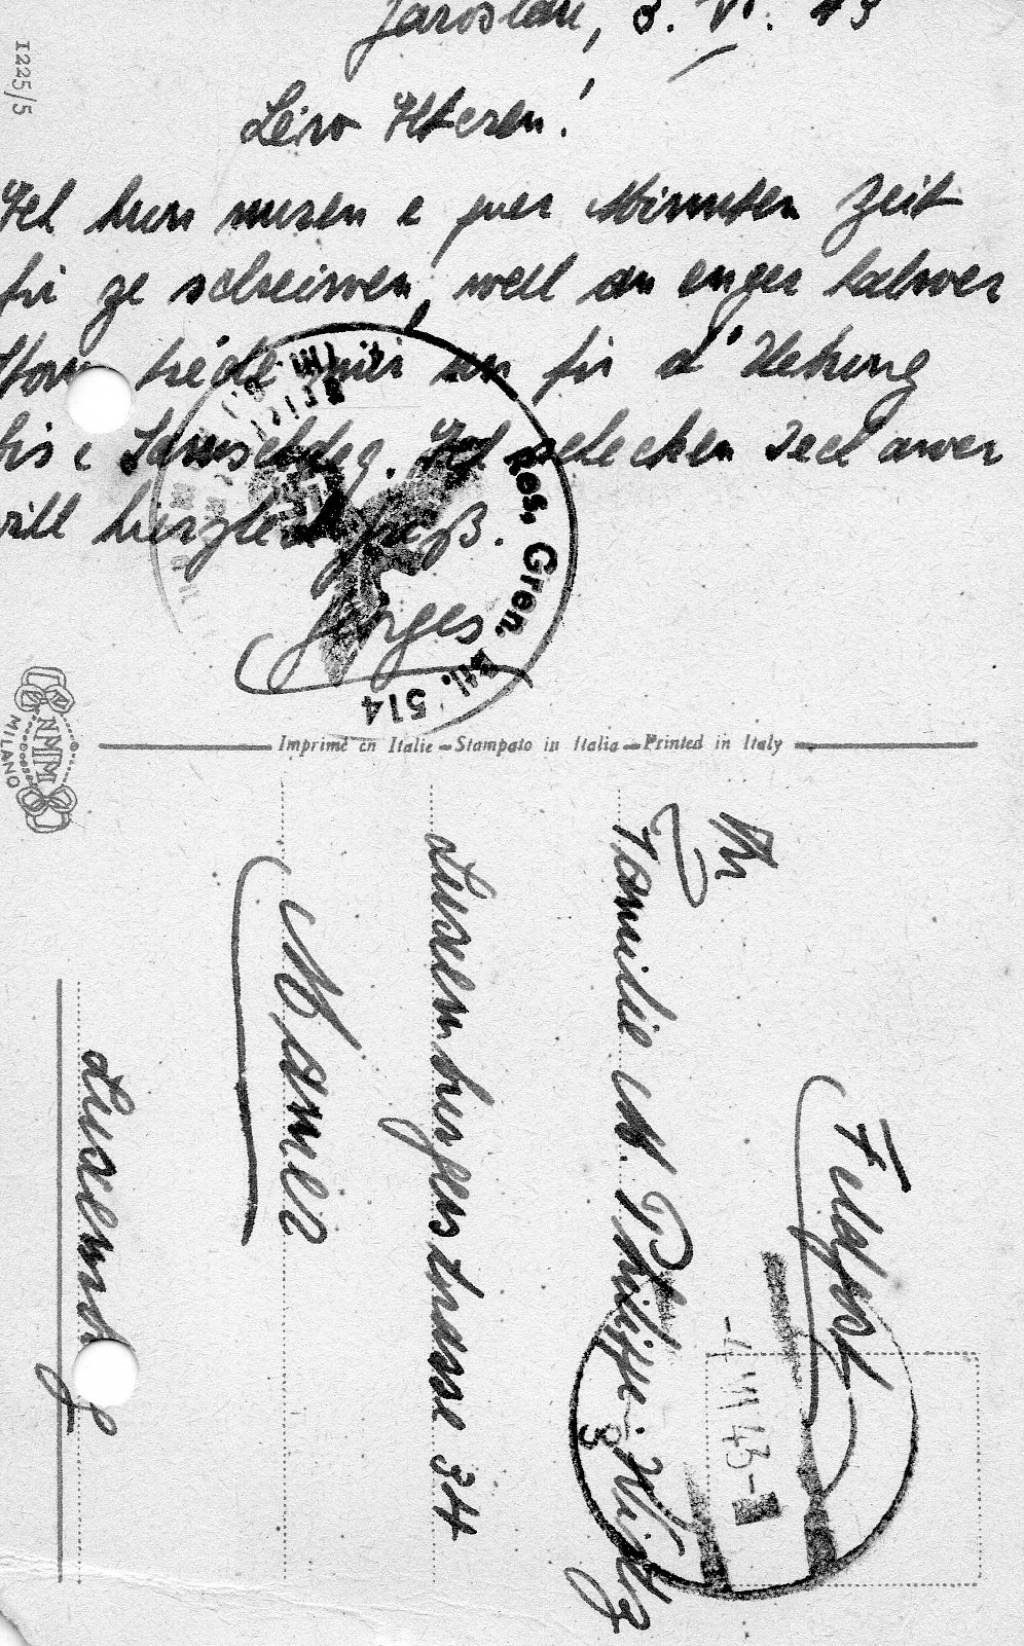 Jaroslau, 3. VI. 43
Léiw Elteren!
Ech hun nusen e puer Minuten Zeit
fir ze schreiwen, well an enger halwer
Stonn héole mir un fir d'Uebung
bis e Samschdeg. Ech schecken Iech awer
vill herzlech Gréiß.
Jorges
Res. Gren. Btl. 514
Imprimé en Italie — Stampato in Italia — Printed in Italy
1225/5
NMM
MILANO
Feldpost
An
Familie M. Philippe-Klotz
Luxemburgerstrasse 34
Mamer
Luxemburg
-4.VI.43-